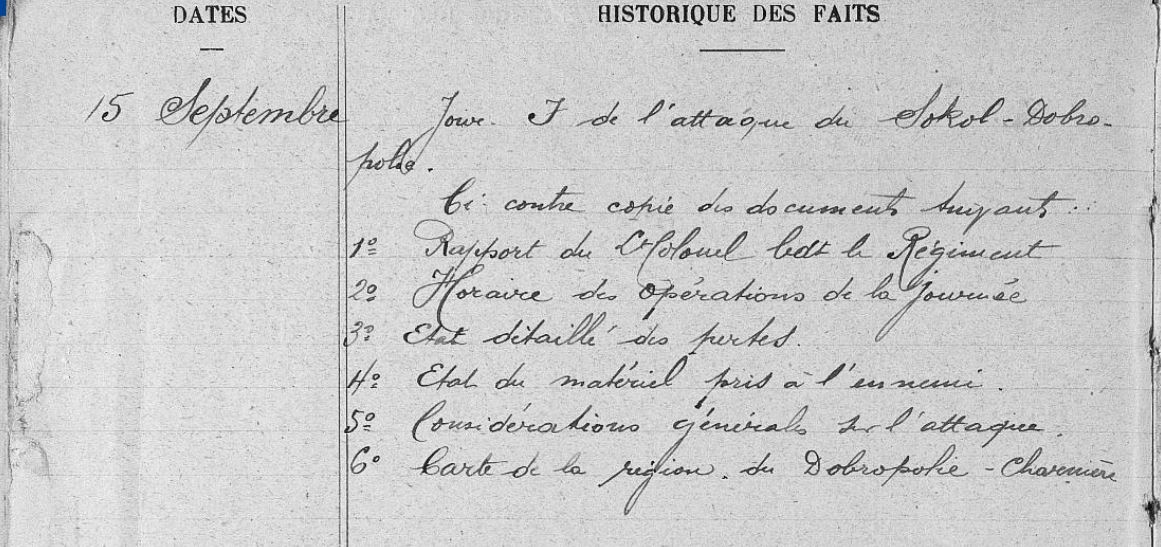 DATES
HISTORIQUE DES FAITS
15 Septembre
Jour J de l'attaque du Sokol-Dobro-
polie.
Ci contre copie des documents suivants :
1º Rapport du Lt Colonel Cdt le Régiment
2º Horaire des Opérations de la journée
3º Etat détaillé des pertes.
4º Etat du matériel pris à l'ennemi.
5º Considérations générales sur l'attaque.
6º Carte de la région du Dobropolie - Charnière